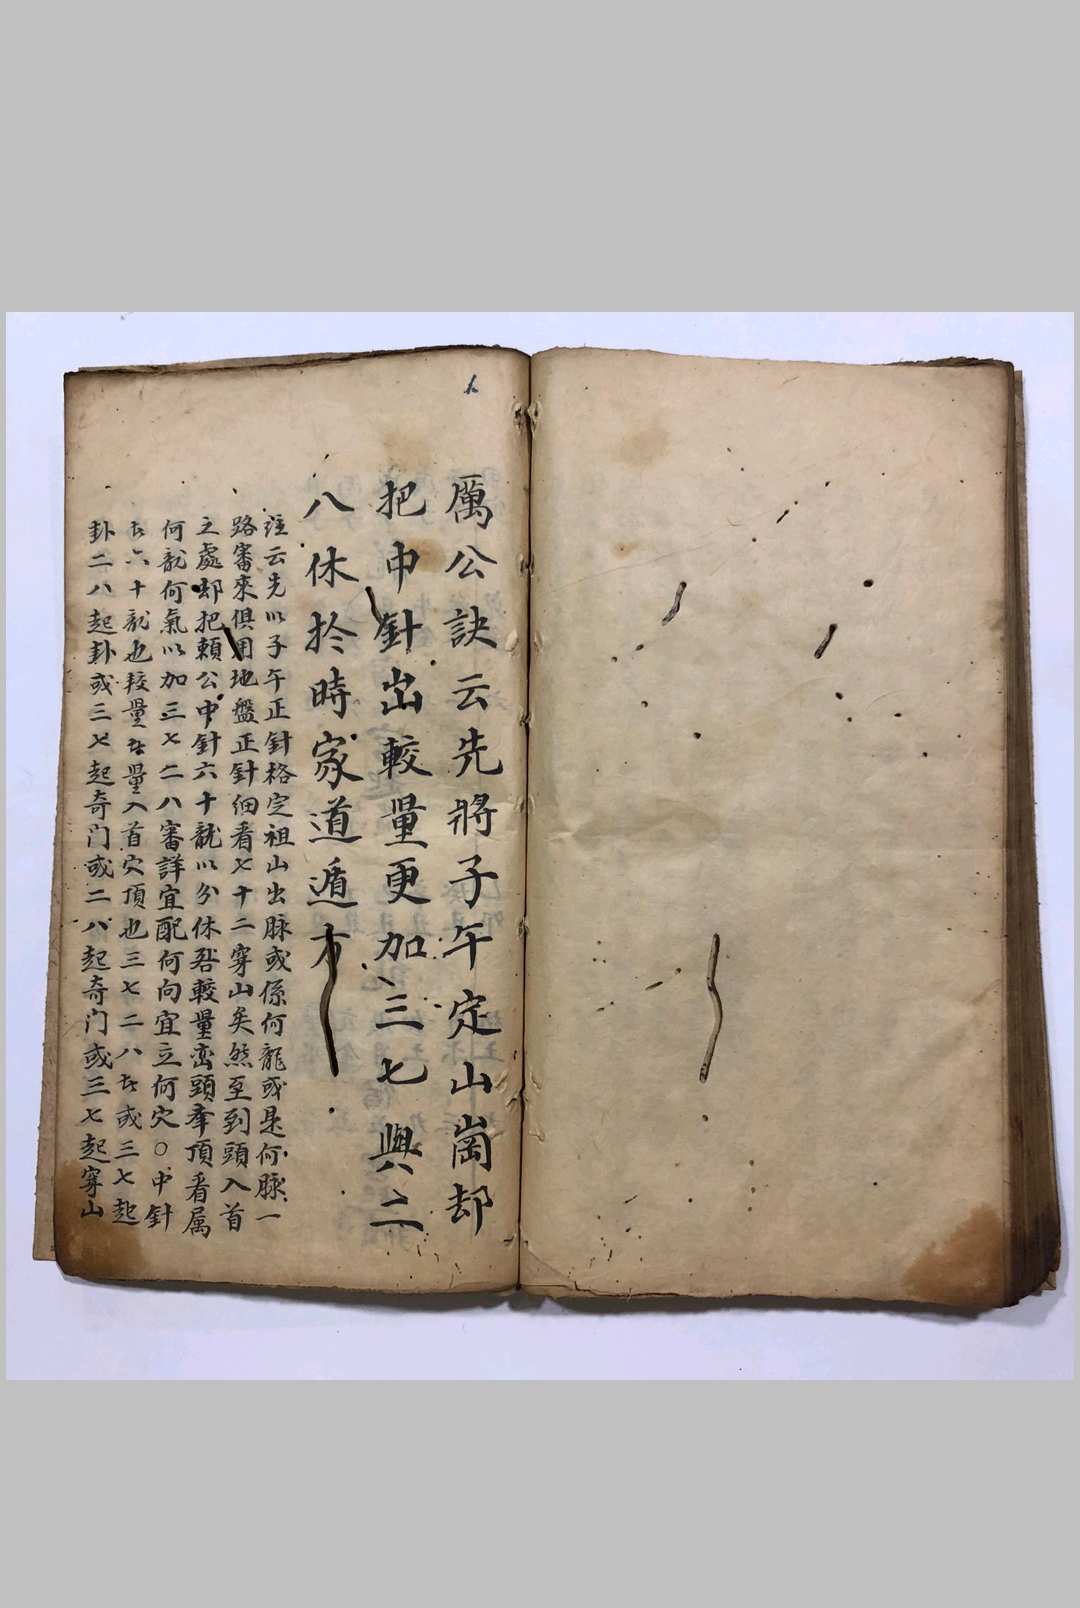 厲公訣云先將子午定山崗却
把中針出較量更加三七與二
八休於時家道遁方
註云先以子午正針格定祖山出脉或係何龍或是何脉一
路審來俱用地盤正針細看七十二穿山矣然至到頭入首
之處却把賴公中針六十龍以分休咎較量巒頭牽頂看属
何龍何氣以加三七二八審詳宜配何向宜立何穴○中針
六十龍也較量量入首穴頂也三七二八或三七起
卦二八起卦或三七起奇门或二八起奇门或三七起穿山